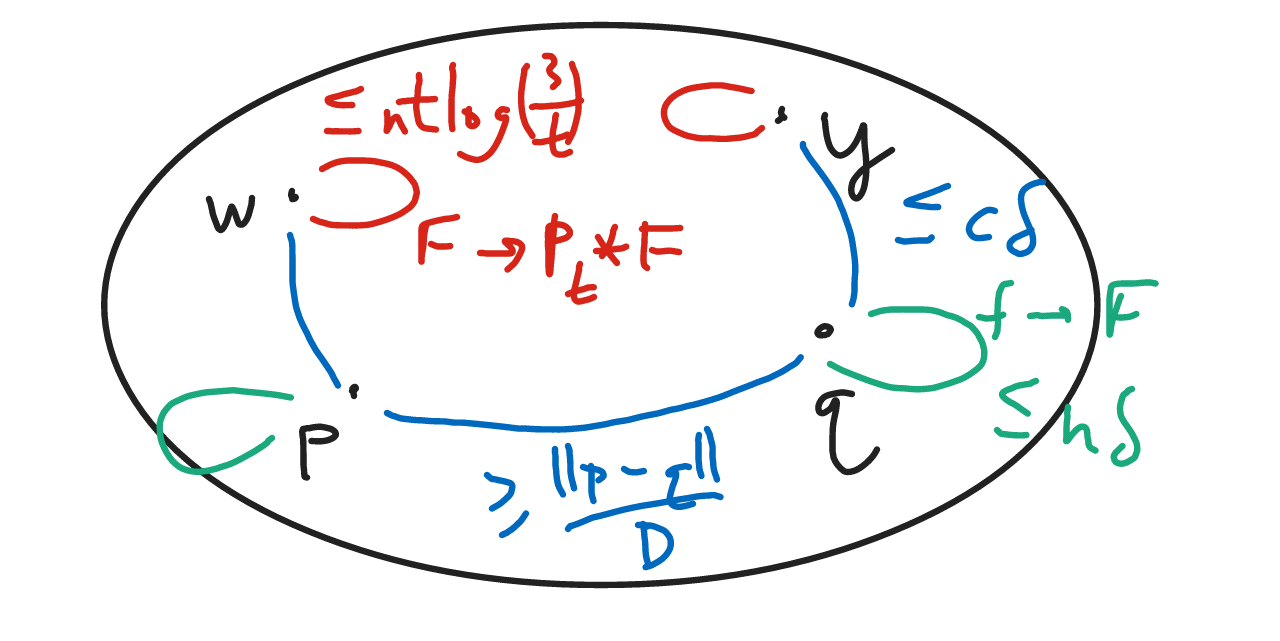 ≤ nt log(3/t)
y
w
≤ cδ
F → P_t * F
f → F
≤ nδ
p
q
≥ ||p - q|| / D